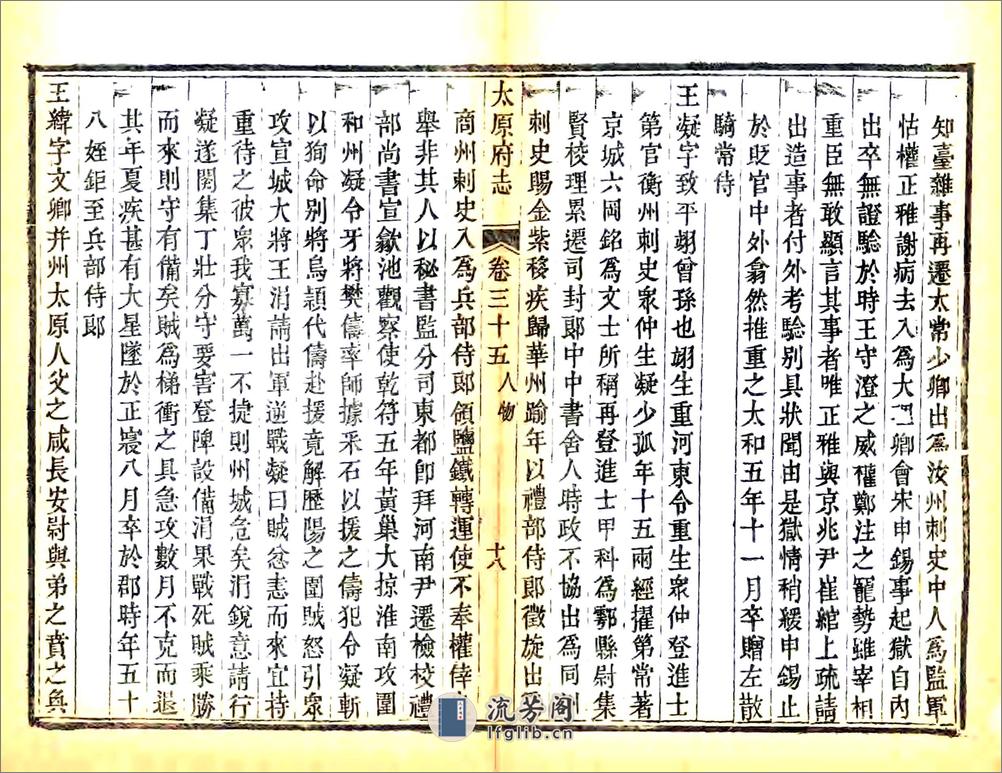 知臺雜事再遷太常少卿出爲汝州刺史中人爲監軍
怙權正雅謝病去入爲大理卿會宋申錫事起獄自內
出卒無證驗於時王守澄之威權鄭注之寵勢雖宰相
重臣無敢顯言其事者唯正雅與京兆尹崔綰上疏請
出造事者付外考驗别具狀聞由是獄情稍緩申錫止
於貶官中外翕然推重之太和五年十一月卒贈左散
騎常侍
王凝字致平翊曾孫也翊生重河東令重生衆仲登進士
第官衡州刺史衆仲生凝少孤年十五兩經擢第常著
京城六岡銘爲文士所稱再登進士甲科爲鄠縣尉集
賢校理累遷司封郎中中書舍人時政不協出爲同州
刺史賜金紫移疾歸華州踰年以禮部侍郎徵旋出爲
太原府志 卷三十五 人物 十八
商州刺史入爲兵部侍郎領鹽鐵轉運使不奉權倖
舉非其人以秘書監分司東都卽拜河南尹遷檢校禮
部尚書宣歙池觀察使乾符五年黃巢大掠淮南攻圍
和州凝令牙將樊儔率師據采石以援之儔犯令凝斬
以狥命别將烏頴代儔赴援竟解歷陽之圍賊怒引衆
攻宣城大將王涓請出軍逆戰凝曰賊忿恚而來宜持
重待之彼衆我寡萬一不捷則州城危矣涓銳意請行
凝遂閱集丁壯分守要害登陴設備涓果戰死賊乘勝
而來則守有備矣賊爲梯衝之具急攻數月不克而退
其年夏疾甚有大星墜於正寢八月卒於郡時年五十
八姪鉅至兵部侍郎
王緯字文卿并州太原人父之咸長安尉與弟之賁之奐
流芳阁
lfglib.cn